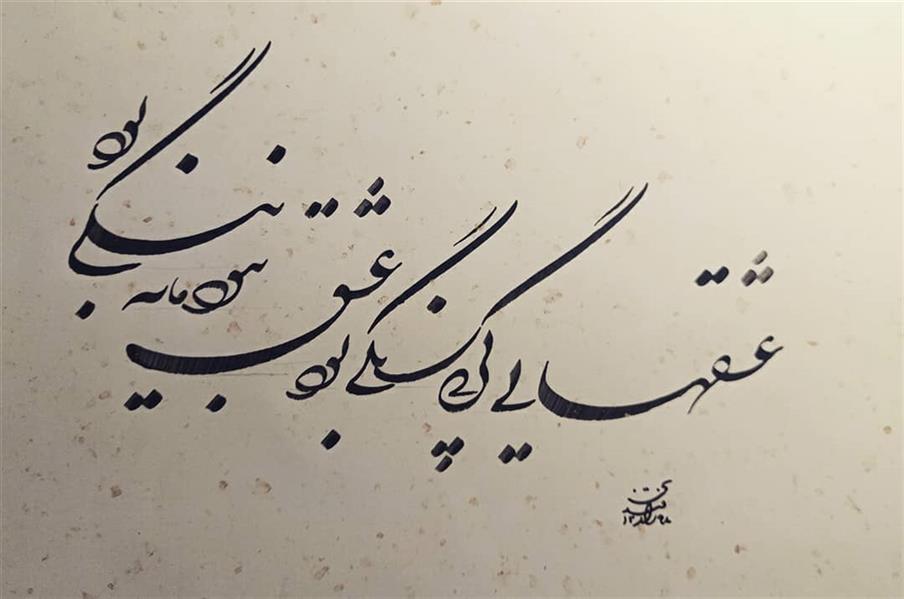 عشقهایی کز پی رنگی بود
عشق نبود مایه ننگی بود